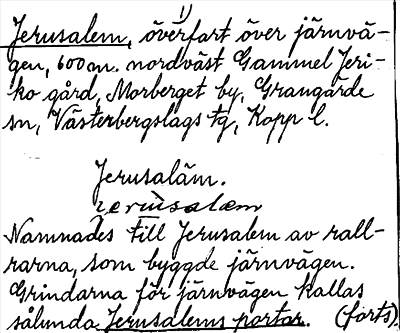 1)
Jerusalem, överfart över järnvä-
gen, 600 m. nordväst Gammel Jeri-
ko gård, Morberget by, Grangärde
sn, Västerbergslags tg, Kopp l.
Jerusaläm.
jerusalem
Namnades till Jerusalem av rall-
rarna, som byggde järnvägen.
Grindarna för järnvägen kallas
sålunda Jerusalems portar. (forts).